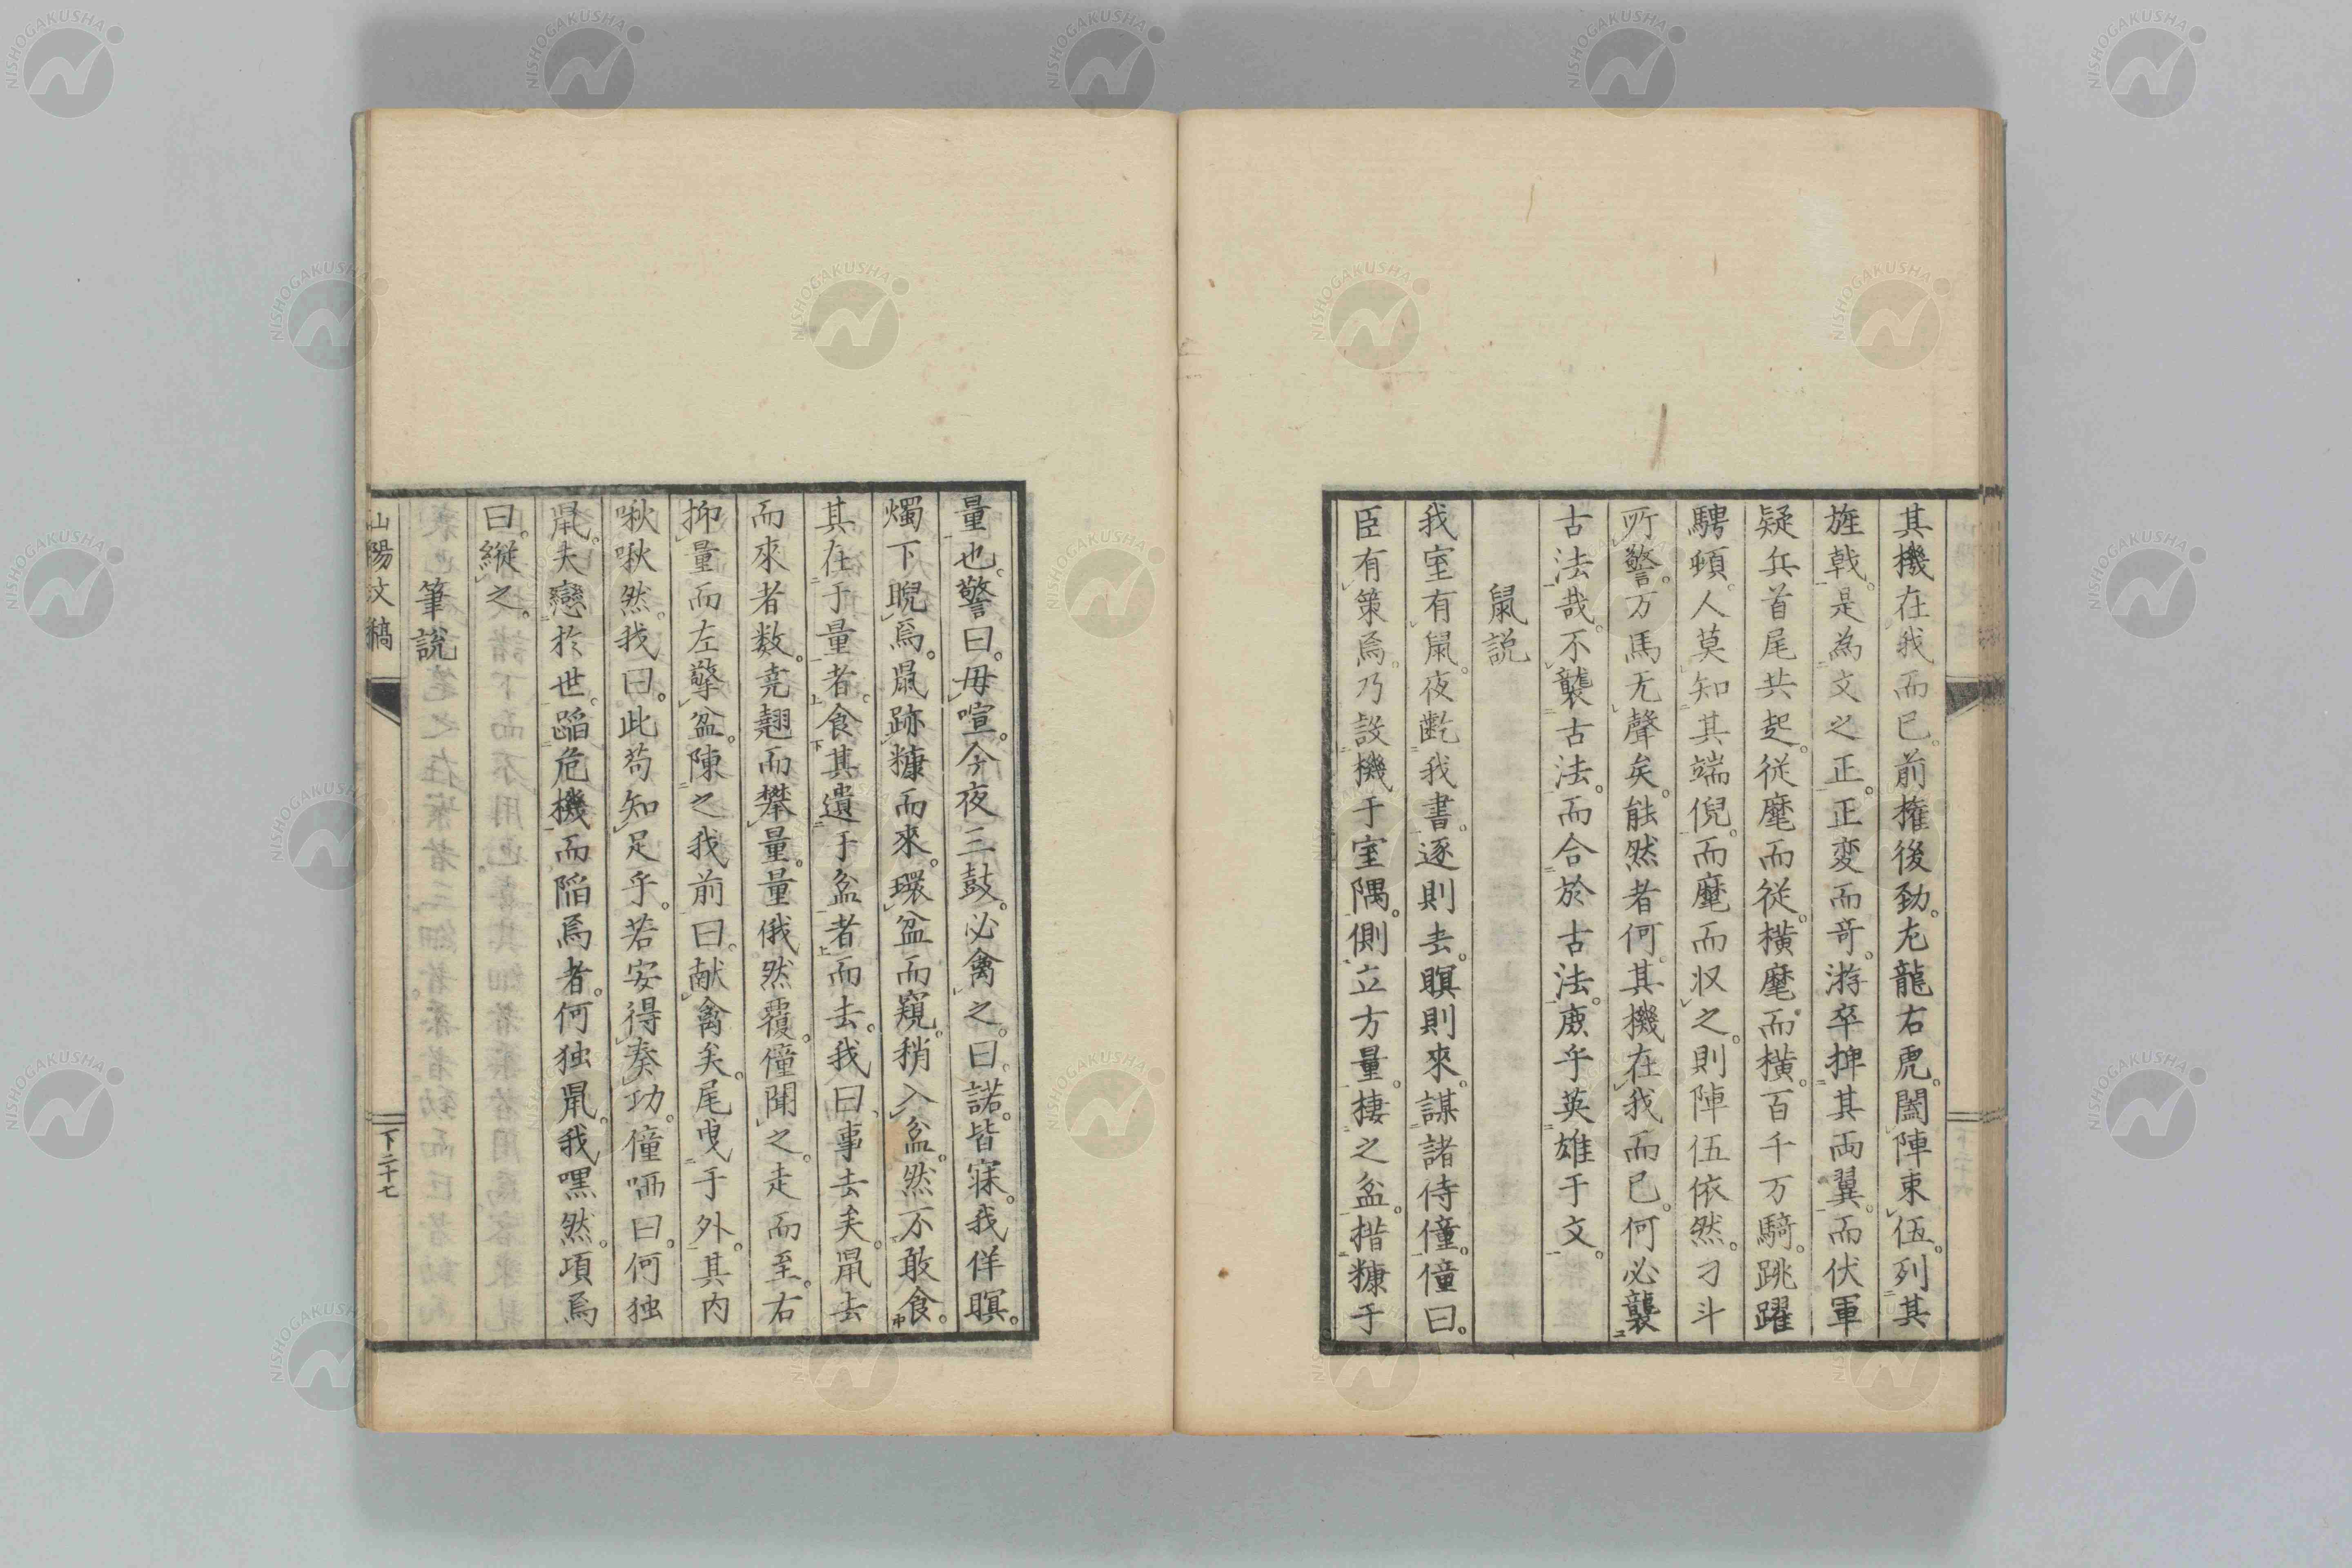 其機在我而已。前権後勁。左龍右虎。闔陣束伍。列其
旌戟。是為文之正。正変而奇。游卒捭其両翼。而伏軍
疑兵首尾共起。従麾而従。横麾而横。百千万騎。跳躍
騁頓。人莫知其端倪。而麾而収之。則陣伍依然。刁斗
所警。万馬无聲矣。能然者何。其機在我而已。何必襲
古法哉。不襲古法。而合於古法。庶乎英雄于文。
鼠説
我室有鼠。夜齕我書。逐則去。瞑則來。謀諸侍僮。僮曰。
臣有策焉。乃設機于室隅。側立方量。棲之盆。揩糠于
量也。警曰。毋喧。今夜三鼓。必禽之。曰。諾。皆寐。我佯瞑。
燭下睨焉。鼠跡糠而來。環盆而窺。稍入盆。然不敢食。
其在于量者。食其遺于盆者。而去。我曰。事去矣。鼠去
而來者数。竟翹而攀量。量俄然覆。僮聞之。走而至。右
抑量而左擎盆。陳之我前曰。献禽矣。尾曳于外。其内
啾啾然。我曰。此苟知足乎。若安得奏功。僮哂曰。何独
鼠。夫戀於世。蹈危機而陥焉者。何独鼠。我嘿然。項焉
曰。縦之。
筆説
山陽文稿
下二十七
NISHOGAKUSHA